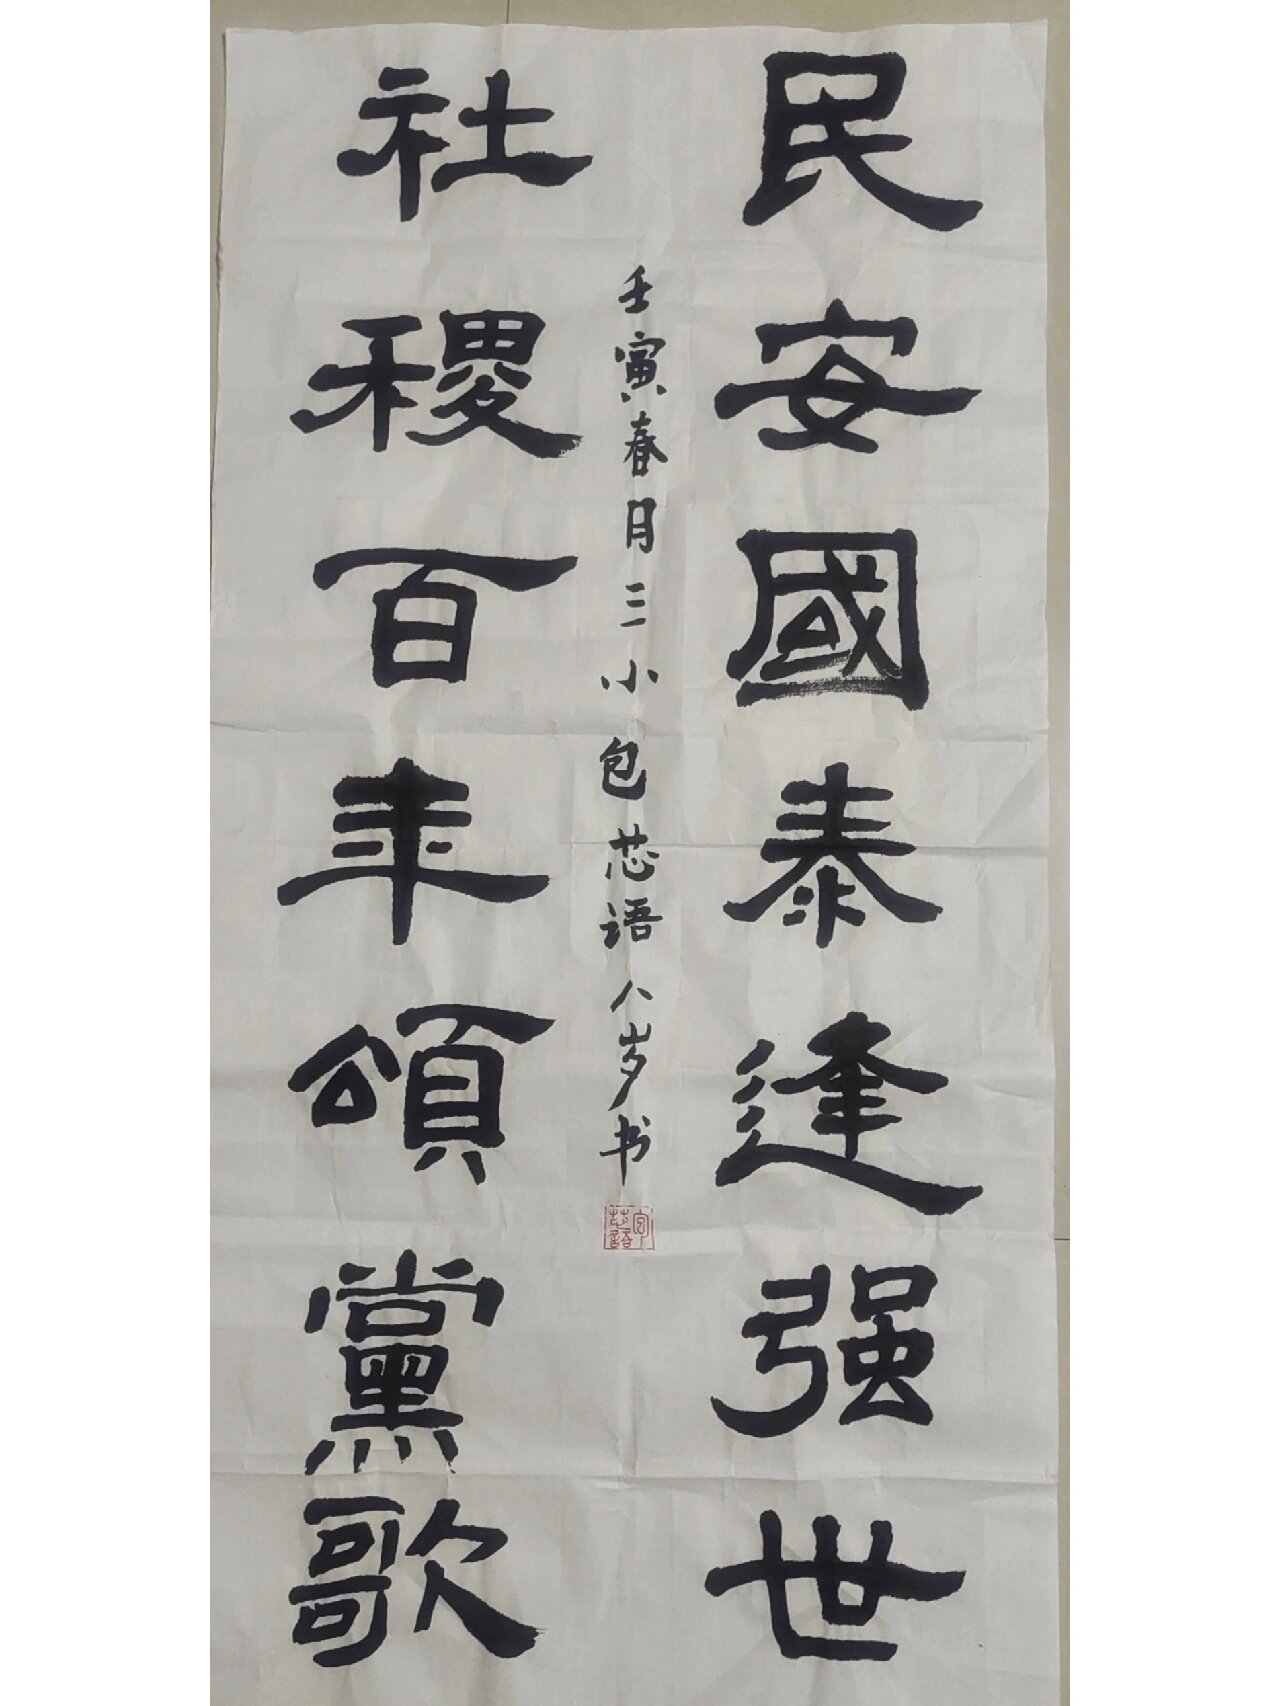 民安國泰逢强世
社稷百年頌黨歌
壬寅春月三小包芯语八岁书